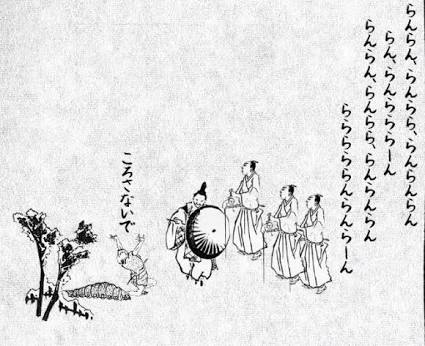 らんらん、らんらら、らんらんらん
らん、らんらららーん
らんらん、らんらら、らんらんらん
ららららららんらんらーん
ころさないで